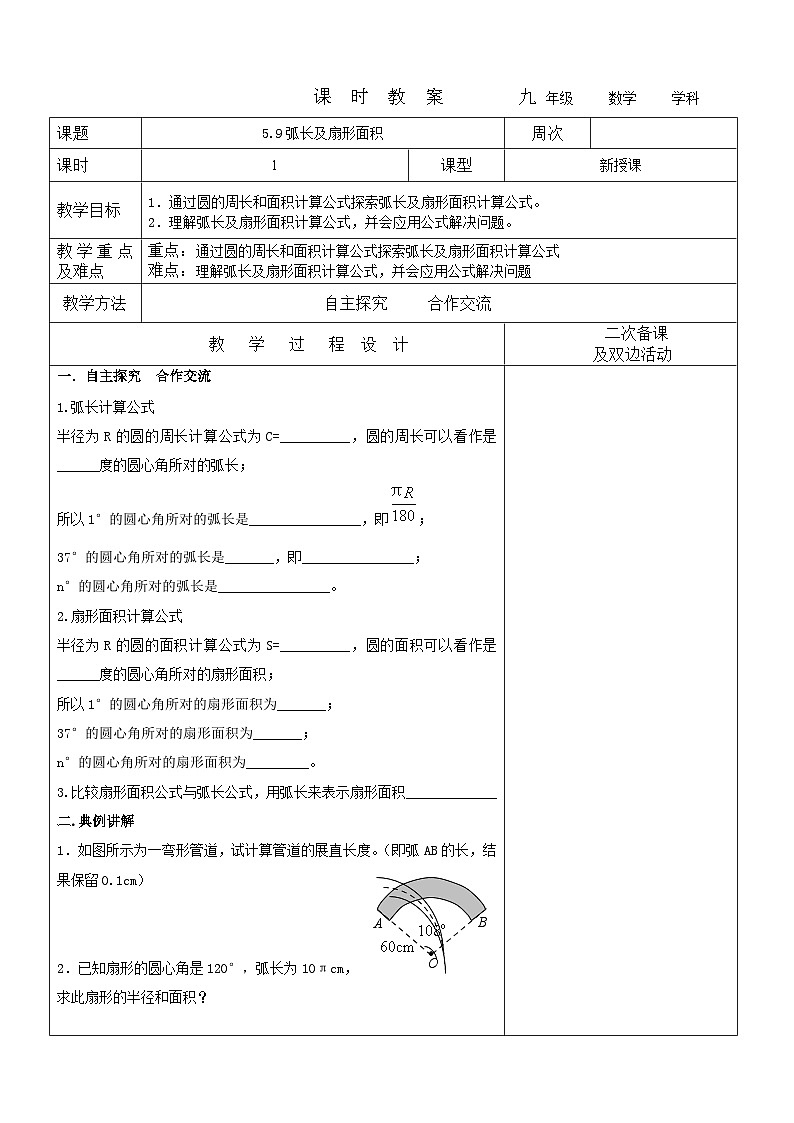 课 时 教 案 九 年级 数学 学科
课题 5.9弧长及扇形面积 周次
课时 1 课型 新授课
教学目标
1．通过圆的周长和面积计算公式探索弧长及扇形面积计算公式。
2．理解弧长及扇形面积计算公式，并会应用公式解决问题。
教学重点
及难点
重点：通过圆的周长和面积计算公式探索弧长及扇形面积计算公式
难点：理解弧长及扇形面积计算公式，并会应用公式解决问题
教学方法 自主探究 合作交流
教 学 过 程 设 计
二次备课
及双边活动
一．自主探究 合作交流
1.弧长计算公式
半径为 R 的圆的周长计算公式为 C=__________，圆的周长可以看作是
______度的圆心角所对的弧长；
所以 1°的圆心角所对的弧长是________________，即πR/180；
37°的圆心角所对的弧长是_______，即________________；
n°的圆心角所对的弧长是________________。
2.扇形面积计算公式
半径为 R 的圆的面积计算公式为 S=__________，圆的面积可以看作是
______度的圆心角所对的扇形面积；
所以 1°的圆心角所对的扇形面积为_______；
37°的圆心角所对的扇形面积为_______；
n°的圆心角所对的扇形面积为_________。
3.比较扇形面积公式与弧长公式，用弧长来表示扇形面积_____________
二.典例讲解
1．如图所示为一弯形管道，试计算管道的展直长度。（即弧 AB 的长，结
果保留 0.1cm）
A
B
108°
60cm
O
2．已知扇形的圆心角是 120°，弧长为 10πcm，
求此扇形的半径和面积？